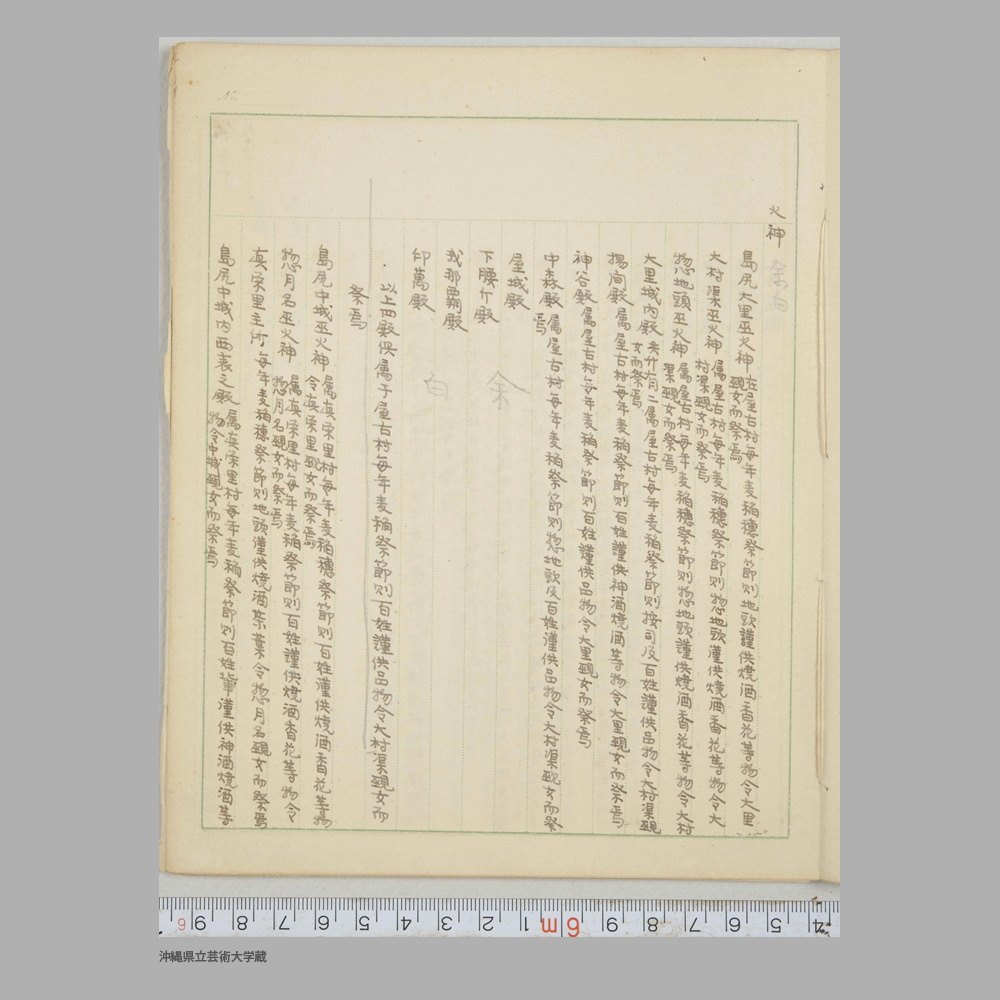 火神 余白
島尻大里巫火神 在屋古村每年麦稲穗祭節則地頭謹供焼酒香花等物令大里
覡女而祭焉
大村渠巫火神 属屋古村每年麦稲穗祭節則惣地頭謹供焼酒香花等物令大
村渠覡女而祭焉
惣地頭巫火神 属屋古村每年麦稲穗祭節則惣地頭謹供焼酒香花等物令大村
渠覡女而祭焉
大里城内殿 属屋古村每年麦稲祭節則按司及百姓謹供品物令大村渠覡
女而祭焉
揚向殿 属屋古村每年麦稲祭節則百姓謹供神酒焼酒等物令大里覡女而祭焉
神谷殿 属屋古村每年麦稲祭節則百姓謹供品物令大里覡女而祭焉
中森殿 属屋古村每年麦稲祭節則惣地頭及百姓謹供品物令大村渠覡女而祭
焉
屋城殿
下腰介殿
我那覇殿
仰萬殿
余白
以上四殿俱属于屋古村每年麦稲祭節則百姓謹供品物令大村渠覡女而
祭焉
島尻中城巫火神 属真栄里村每年麦稲穗祭節則百姓謹供焼酒香花等物
令真栄里覡女而祭焉
惣月名巫火神 属真栄里村每年麦稲祭節則百姓謹供焼酒香花等物令
惣月名覡女而祭焉
真栄里主所 每年麦稲穗祭節則地頭謹供焼酒茶葉令惣月名覡女而祭焉
島尻中城内西表之殿 属真栄里村每年麦稲祭節則百姓謹供神酒焼酒等
物令中城覡女而祭焉
9 8 7 6 5 4 3 2 1 6m 9 8 7 6 5 4
沖縄県立芸術大学蔵